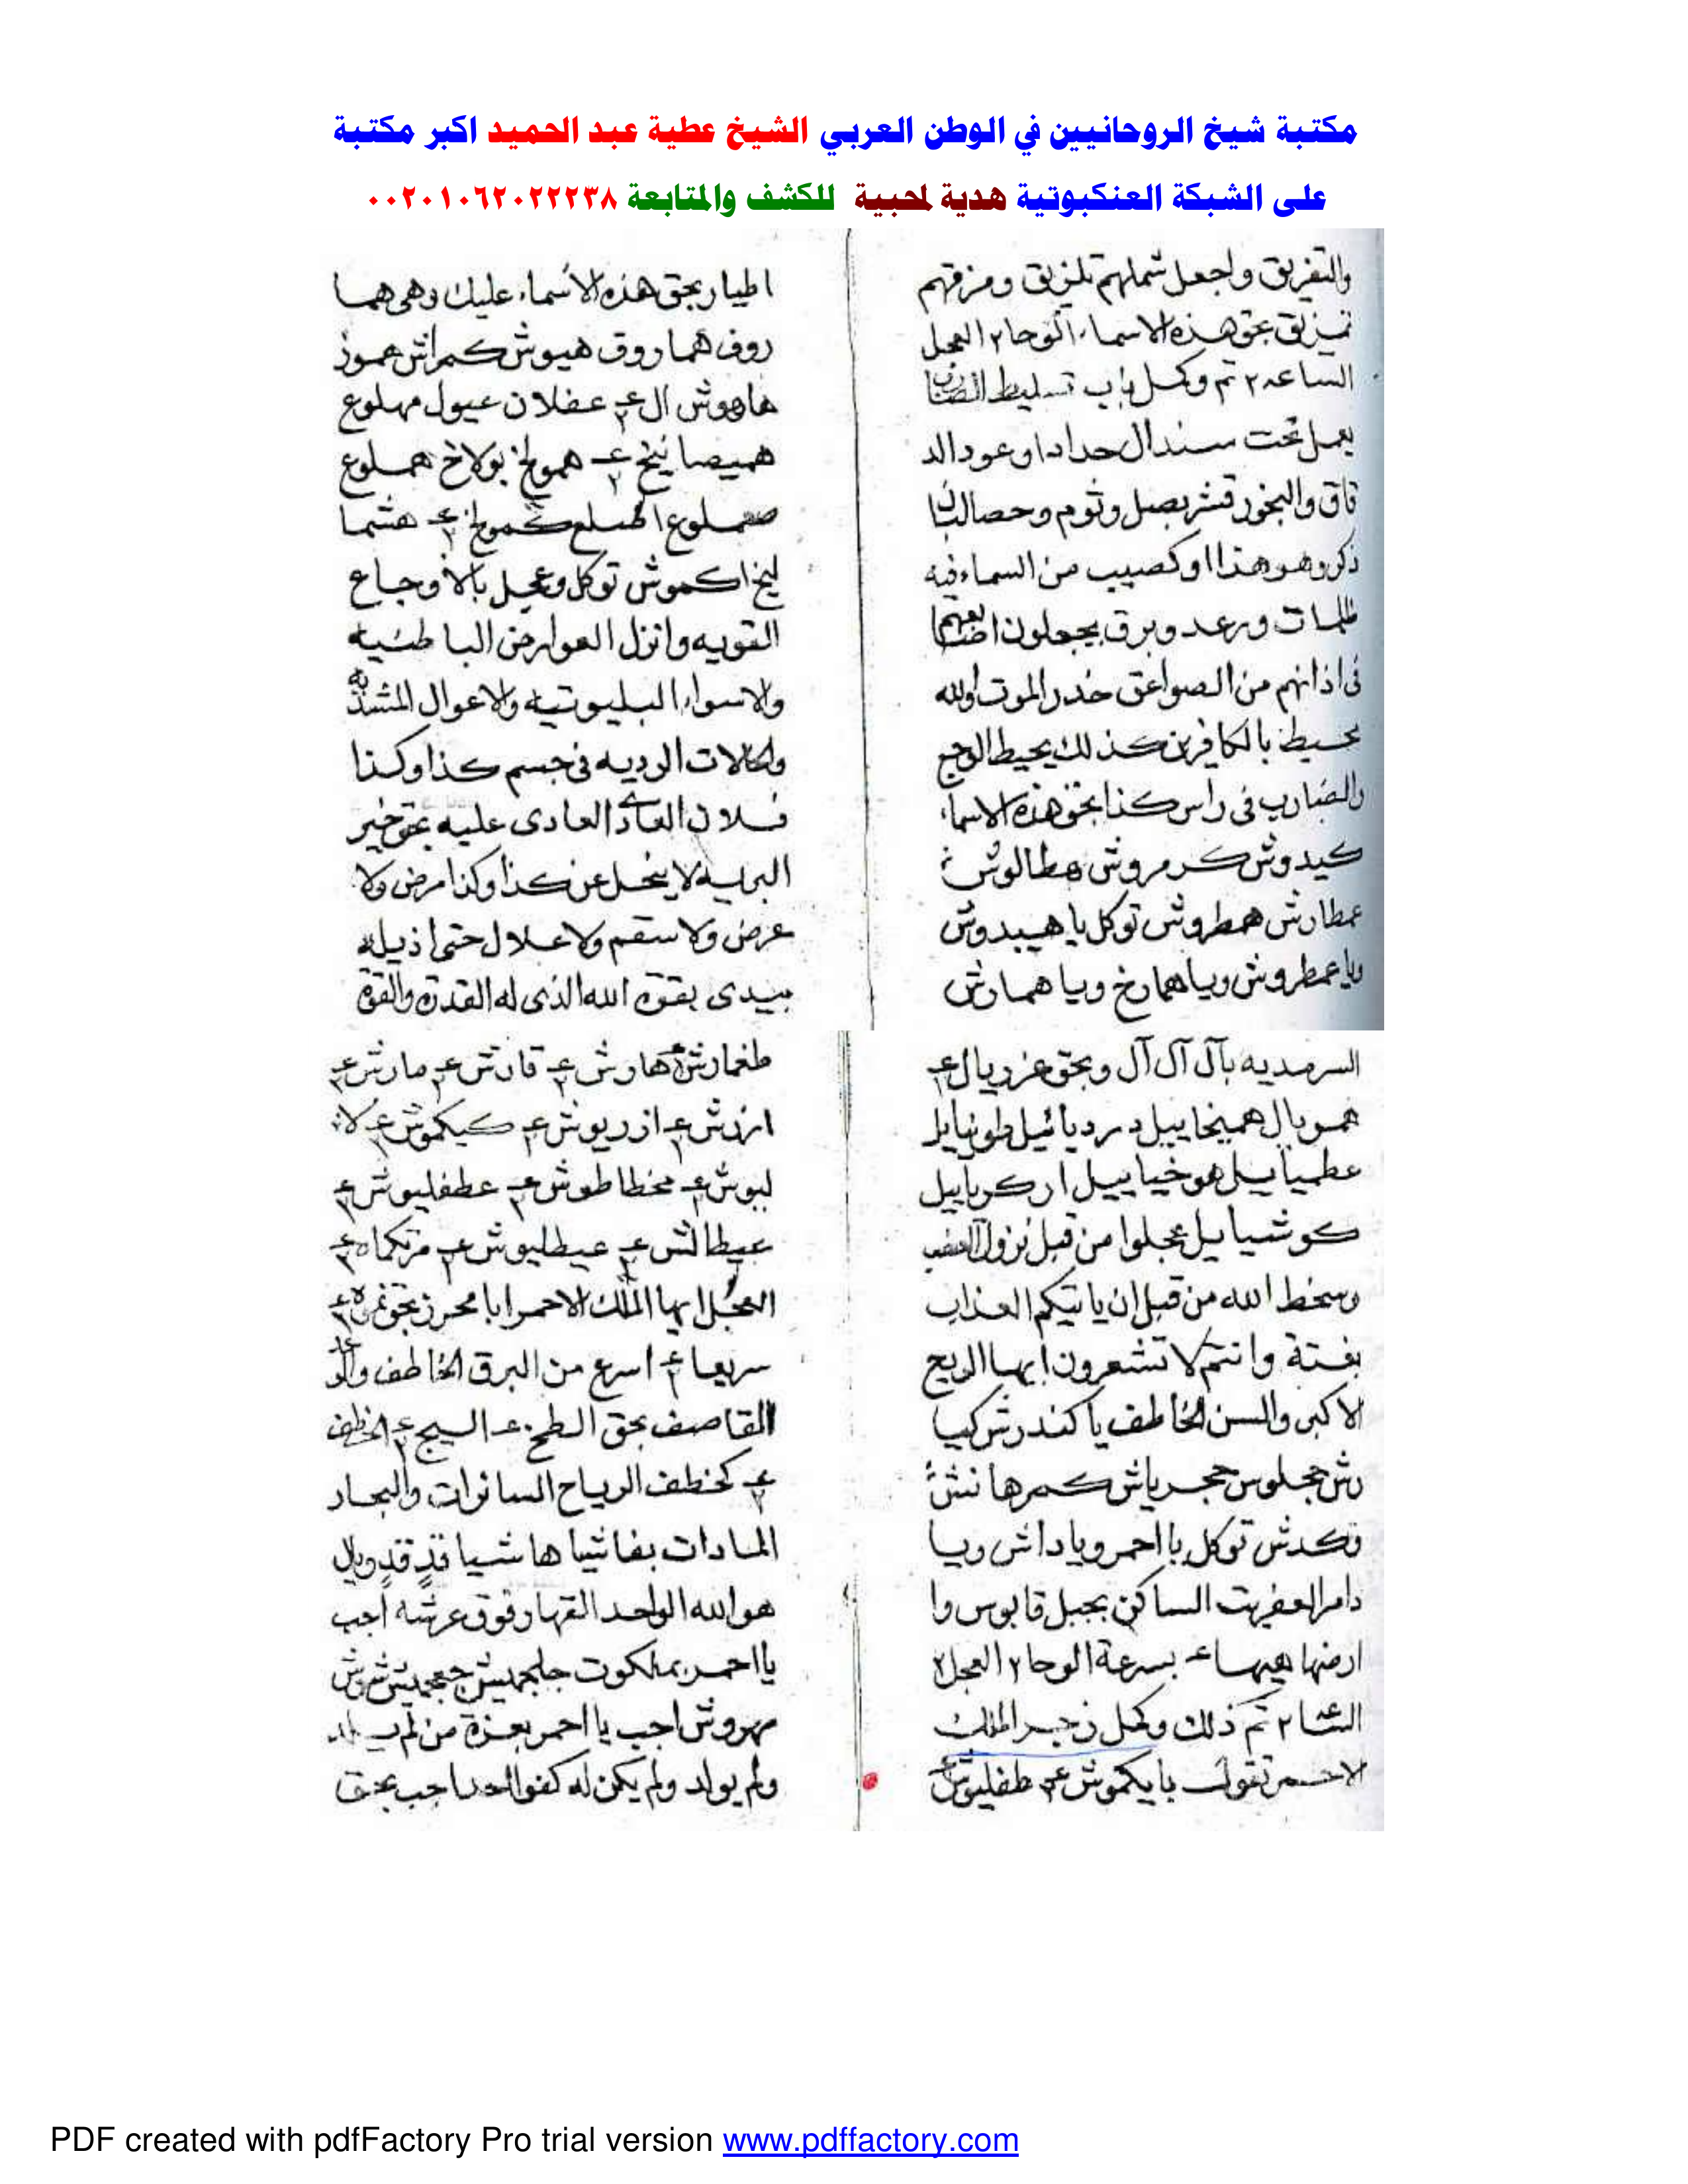 مكتبة شيخ الروحانيين في الوطن العربي الشيخ عطية عبد الحميد اكبر مكتبة
على الشبكة العنكبوتية هدية لمحبية للكشف والمتابعة ٠٠٢٠١٠٦٢٠٢٢٢٣٨
والتفريق واجعل شملهم تلزيق ومزقهم
تمزيق بحق هذه الاسماء الوحا٢ العجل
الساعه ٢ تم وكمل باب تسليط
يعمل تحت سندال حداد او عود الد
قاق والبخور قشر بصل وثوم وحصالبان
ذكر وهو هذا اوكصيب من السماء فيه
ظلمات ورعد وبرق يجعلون اصابعهم
فى اذانهم من الصواعق حذر الموت والله
محيط بالكافرين كذلك يحيط الوجع
والضارب فى راس كذا بحق هذه الاسماء
كيدوش كرمروش هطالوش
عطارش همطروش توكل يا هيبدوش
ويا عمطروش ويا همارخ ويا همارش
اطيار بحق هذه الاسماء عليك وهى هما
روف هماروق هيوش كمراش هموز
هاهوش ال عفلان عيول مهلوع
هميصا نيخ هموخ بولاخ هملوع
صعملوع هشما
ليخ اكموش توكل وعجل بالاوجاع
القويه وانزل العوارض الباطنيه
والاسواء البليوتيه والاعوال المشد
والحالات الرديه فى جسم كذا وكذا
فلان العادى عليه بحق خير
البريه لا ينحل عن كذا وكذا مرض ولا
عرض ولا سقم ولا علال حتى اذيله
بيدى بقوة الله الذى له القدرة والقوة
السرمديه بآل آل آل وبحق عزريال
هموبال همينحاييل دردياييل طونيايل
عطيياييل هوخياييل اركرياييل
كوشياييل عجلوا من قبل نزول الغضب
وسخط الله من قبل ان ياتيكم العذاب
بغتة وانتم لا تشعرون ايها الريح
الاكبر والسن الخاطف يا كندرش كيبا
رش حجلوس حجرياش كمرهانش
وكدش توكل يا احمر ويا داش ويا
دامر العفريت الساكن بجبل قابوس وا
ارضها هيها بسرعة الوحا٢ العجل٢
الساعه٢ تم ذلك وكمل زجر الملك
الاحمر تقول يا يكموش طفليوش
طغمارش هارش قارش مارش
ارزش ازريوش كيكموش كلا
لبوش مخطاطوش عطفليوش
عيطالش عيطليوش مرتكماه
العجل ايها الملك الاحمر ابا محرز بحق
سريعا اسرع من البرق الخاطف والرعد
القاصف بحق الطمخ السيج الخطف
كخطف الرياح السائرات والبحار
المادات بفاشيا هاشيا قد قد ويال
هو الله الواحد القهار فوق عرشه اجب
يا احمر بملكوت جلجميش جعجميش شروش
مهروش اجب يا احمر بعزة من لم يلد
ولم يولد ولم يكن له كفوا احد اجب بحق
PDF created with pdfFactory Pro trial version www.pdffactory.com